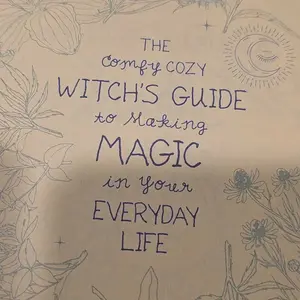 THE
Comfy COZY
WITCH'S GUIDE
to Making
MAGIC
in Your
EVERYDAY
LIFE